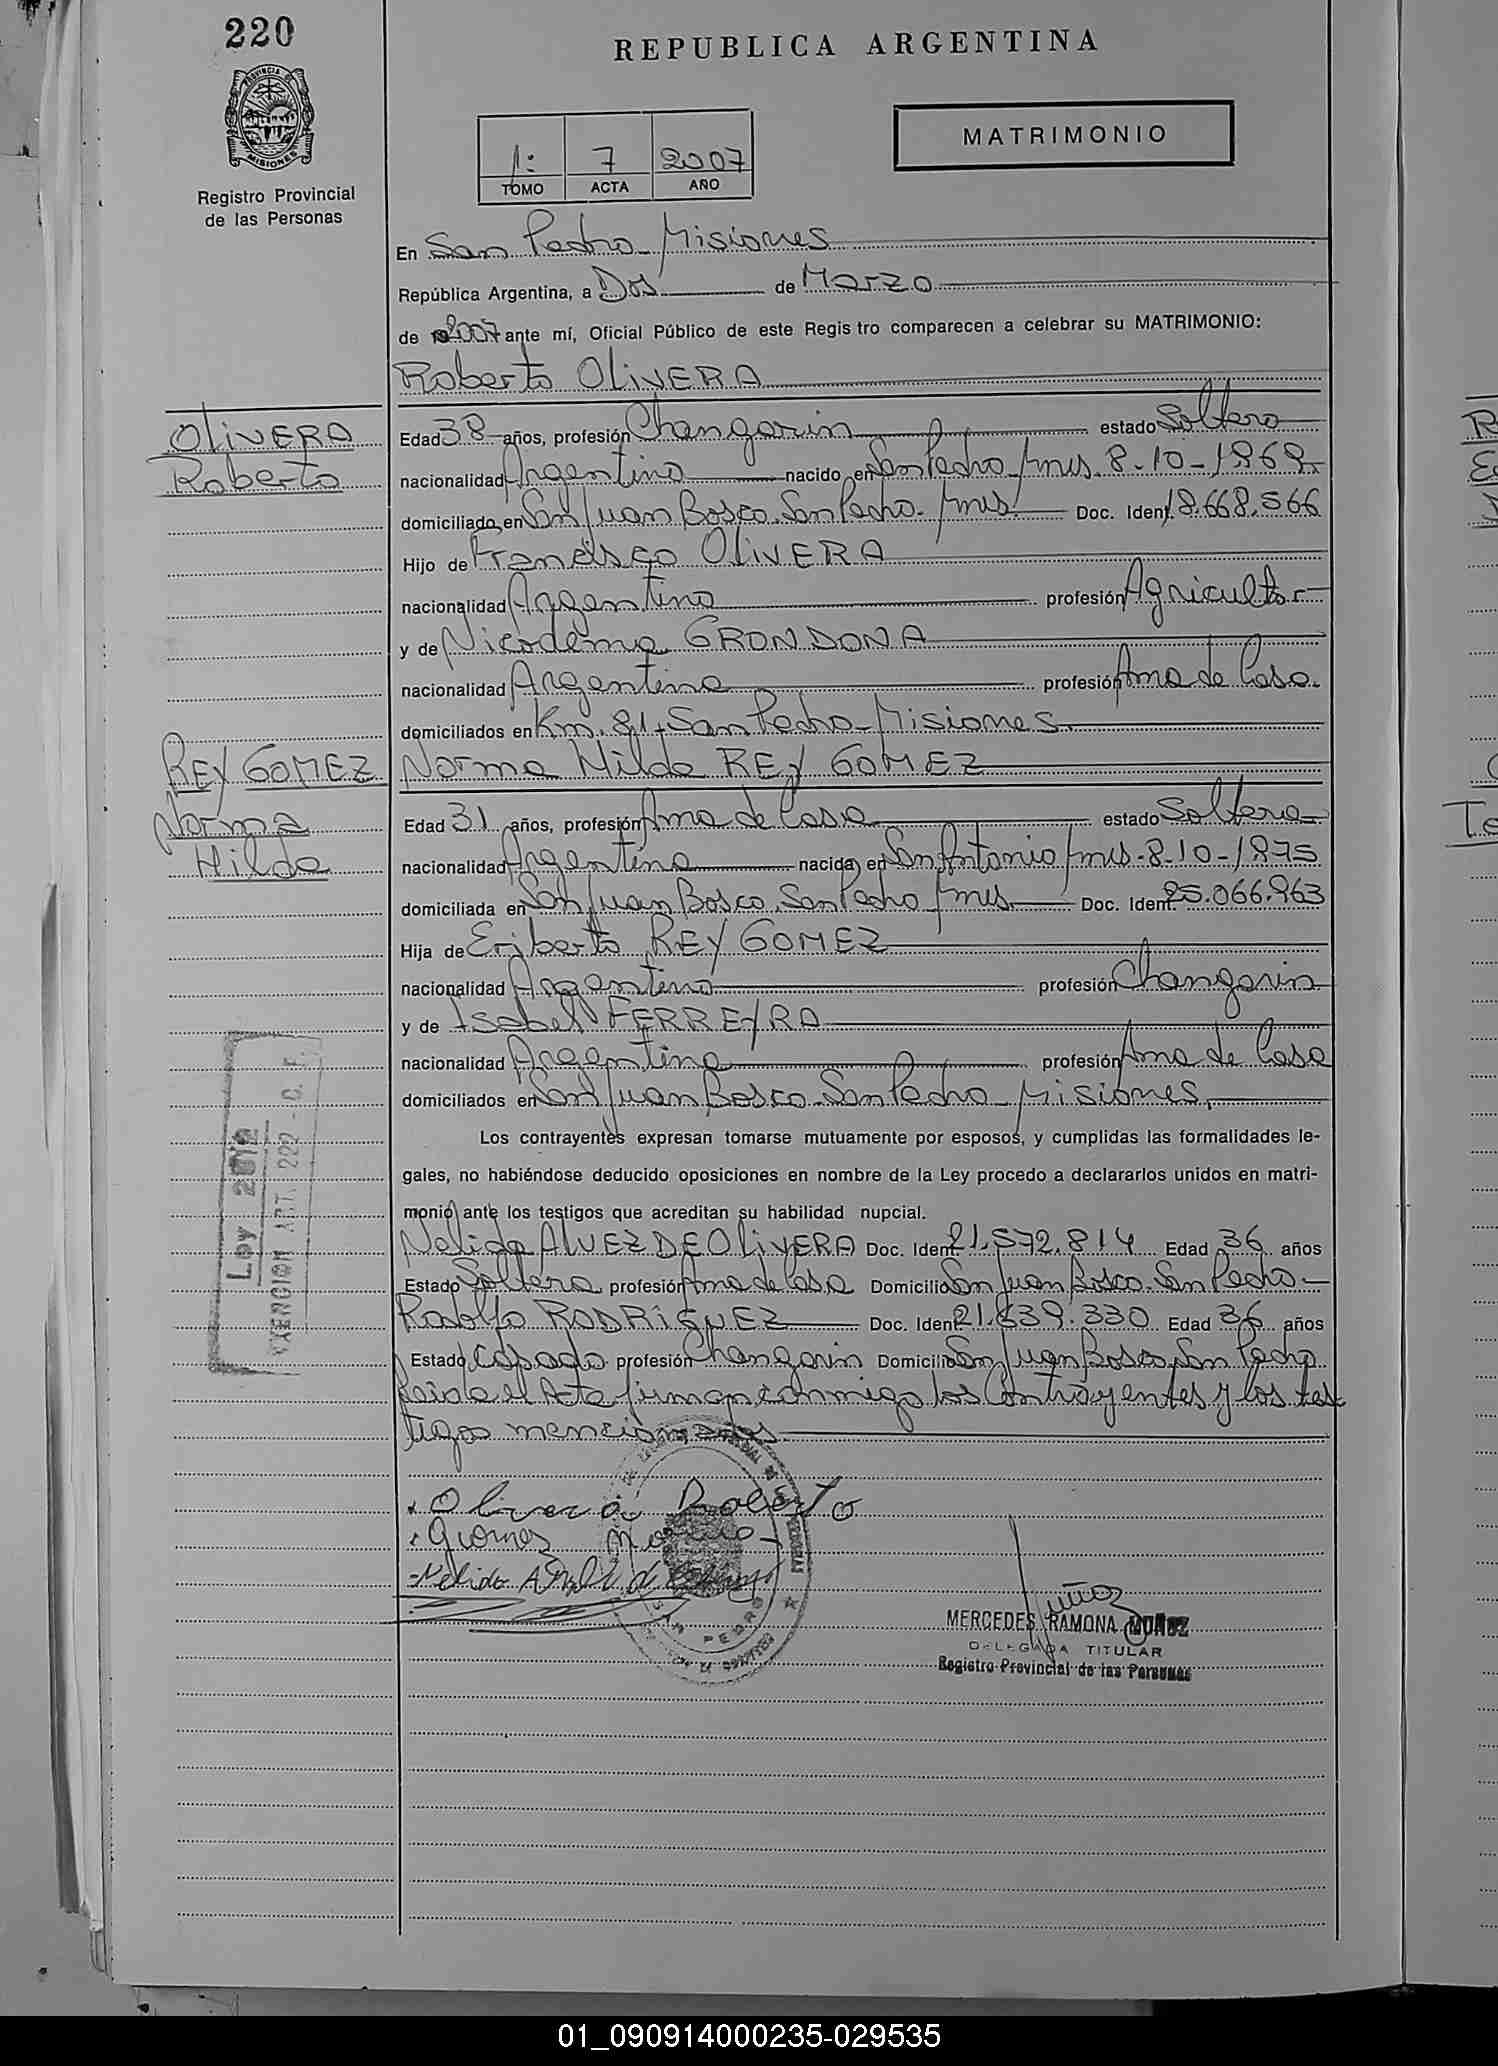 220
REPUBLICA ARGENTINA
PROVINCIA DE
MISIONES
Registro Provincial
de las Personas
1: 7 2007
TOMO ACTA AÑO
MATRIMONIO
En San Pedro Misiones
República Argentina, a Dos de Marzo
de 2007 ante mí, Oficial Público de este Registro comparecen a celebrar su MATRIMONIO:
Roberto OLIVERA
OLIVERA
Roberto
Edad 38 años, profesión Changarin estado Soltero
nacionalidad Argentino nacido en San Pedro Mnes. 8-10-1968
domiciliado en San Juan Bosco. San Pedro. Mnes. Doc. Ident. 18.668.566
Hijo de Francisco OLIVERA
nacionalidad Argentino profesión Agricultor
y de Nicodema GRONDONA
nacionalidad Argentina profesión Ama de Casa.
domiciliados en Km. 81. San Pedro Misiones.
REY GOMEZ
Norma
Hilda
Norma Hilda REY GOMEZ
Edad 31 años, profesión Ama de Casa estado Soltera
nacionalidad Argentina nacida en San Antonio Mnes. 8-10-1975
domiciliada en San Juan Bosco. San Pedro Mnes. Doc. Ident. 25.066.963
Hija de Eriberto REY GOMEZ
nacionalidad Argentino profesión Changarin
y de Isabel FERREYRA
nacionalidad Argentina profesión Ama de Casa
domiciliados en San Juan Bosco. San Pedro Misiones.
Los contrayentes expresan tomarse mutuamente por esposos, y cumplidas las formalidades le-
gales, no habiéndose deducido oposiciones en nombre de la Ley procedo a declararlos unidos en matri-
monio ante los testigos que acreditan su habilidad nupcial.
Nelida ALVEZ DE OLIVERA Doc. Ident. 21.572.814 Edad 36 años
Estado Soltera profesión Ama de Casa Domicilio San Juan Bosco. San Pedro
Rodolfo RODRÍGUEZ Doc. Ident. 21.839.330 Edad 36 años
Estado Casado profesión Changarin Domicilio San Juan Bosco. San Pedro
Leida el Acta firman conmigo los Contrayentes y los tes-
tigos mencionados.
Ley 2012
ART. 222
Olivera Roberto
Gomez
Nelida
SAN PEDRO
Muñoz
MERCEDES RAMONA MUÑOZ
DELEGADA TITULAR
Registro Provincial de las Personas
01_090914000235-029535